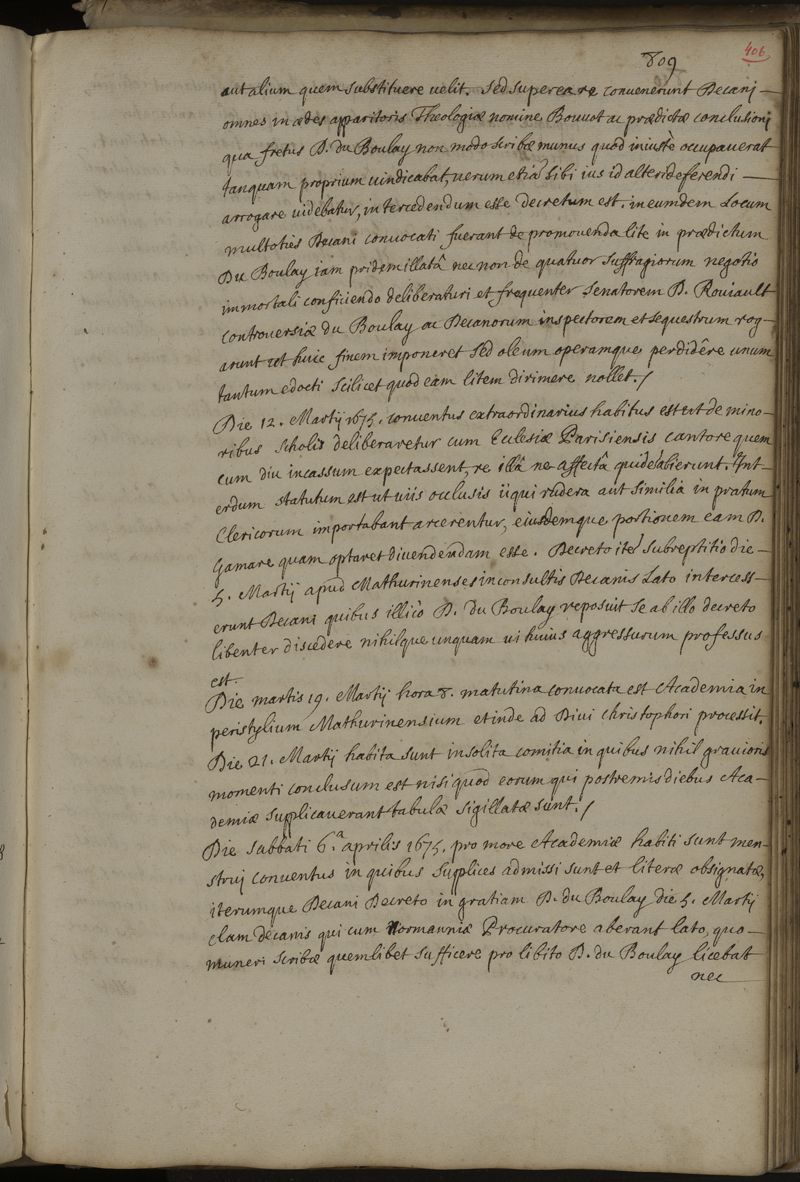 809
406
aut alium quem substituere uelit. Sed super ea re conuenerunt Decanj
omnes in ædes apparitoris Theologiæ nomine Bouuot ac prædictæ conclusionj
qua fretus D. du Boulay non modo scribæ munus quod iniustè occupauerat
tanquam proprium uindicabat, uerum etiã sibi ius id alteri deferendi
arrogare uidebatur, intercedendum esse decretum est. in eumdem Locum
multoties Decani conuocati fuerant de promouenda lite in prædictum
Du Boulay iam pridem illatâ nec non de quatuor suffragiorum negotio
immortali conficiendo deliberaturi et frequenter Senatorem D. Rouiault
controuersiæ du Boulay ac Decanorum inspectorem et sequestrum rog-
arunt ut huic finem imponeret sed oleum operamque perdidêre unum
tantum edocti scilicet quod eam litem dirimere nollet. /
Die 12. Martij 1675. conuentus extraordinarius habitus est ut de mino-
ribus scholis deliberaretur cum Eclesiæ Parisiensis cantore quem
cum diu incassum expectassent, re illâ ne affectâ quidē abierunt. Int-
erdum statutum est ut uiis occlusis ii qui rudera aut similia in pratum
Clericorum importabant arcerentur, eiusdemque portionem eam D.
Gamare quam optaret diuendendam esse. Decreto itē subreptitio die
5. Martij apud Mathurinenses inconsultis Decanis Lato intercess-
erunt Decani quibus illicò D. du Boulay reposuit se ab illo decreto
libenter discedere nihilque unquam ui huius aggressurum professus
est.
Die martis 19. Martij hora 8. matutina conuocata est Academia in
peristylium Mathurinensium et inde ad Diui Christophori processit.
Die 21. Martij habita sunt insolita comitia in quibus nihil grauioris
momenti conclusum est nisi quod eorum qui postremis diebus Aca-
demiæ supplicauerant tabulæ sigillatæ sunt. /
Die sabbati 6.a aprilis 1675. pro more Academiæ habiti sunt men-
struj conuentus in quibus supplices admissi sunt et literæ obsignatæ,
iterumque Decani Decreto in gratiam D. du Boulay die 5. Martij
clam decanis qui cum Normanniæ Procuratore aberant lato, quo
muneri scribæ quemlibet sufficere pro libito D. du Boulay licebat
nec